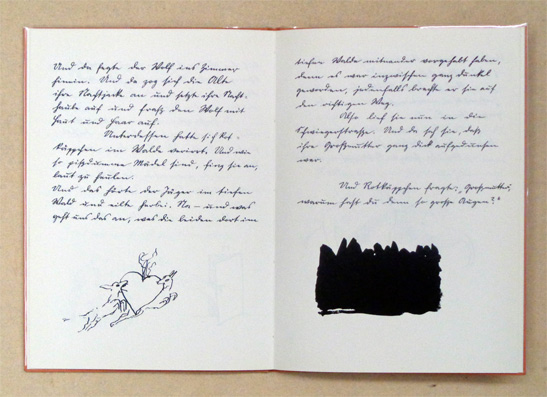 Und da fegte der Wolf ins Zimmer
hinein. Und da zog sich die Alte
ihre Nachtjacke an und setzte ihre Nacht-
haube auf und fraß den Wolf mit
Haut und Haar auf.
Unterdessen hatte sich Rot-
käppchen im Walde verirrt. Und wie
so pißdumme Mädel sind, fing sie an,
laut zu heulen.
Und das hörte der Jäger im tiefen
Wald und eilte herbei. Na – und was
geht uns das an, was die beiden dort im
tiefen Walde miteinander vorgehabt haben,
denn es war inzwischen ganz dunkel
geworden, jedenfalls brachte er sie auf
den richtigen Weg.
Also lief sie nun in die
Schwiegerstraße. Und da sah sie, daß
ihre Großmutter ganz dick aufgedunsen
war.
Und Rotkäppchen fragte: „Großmutter,
warum hast du denn so große Augen?“